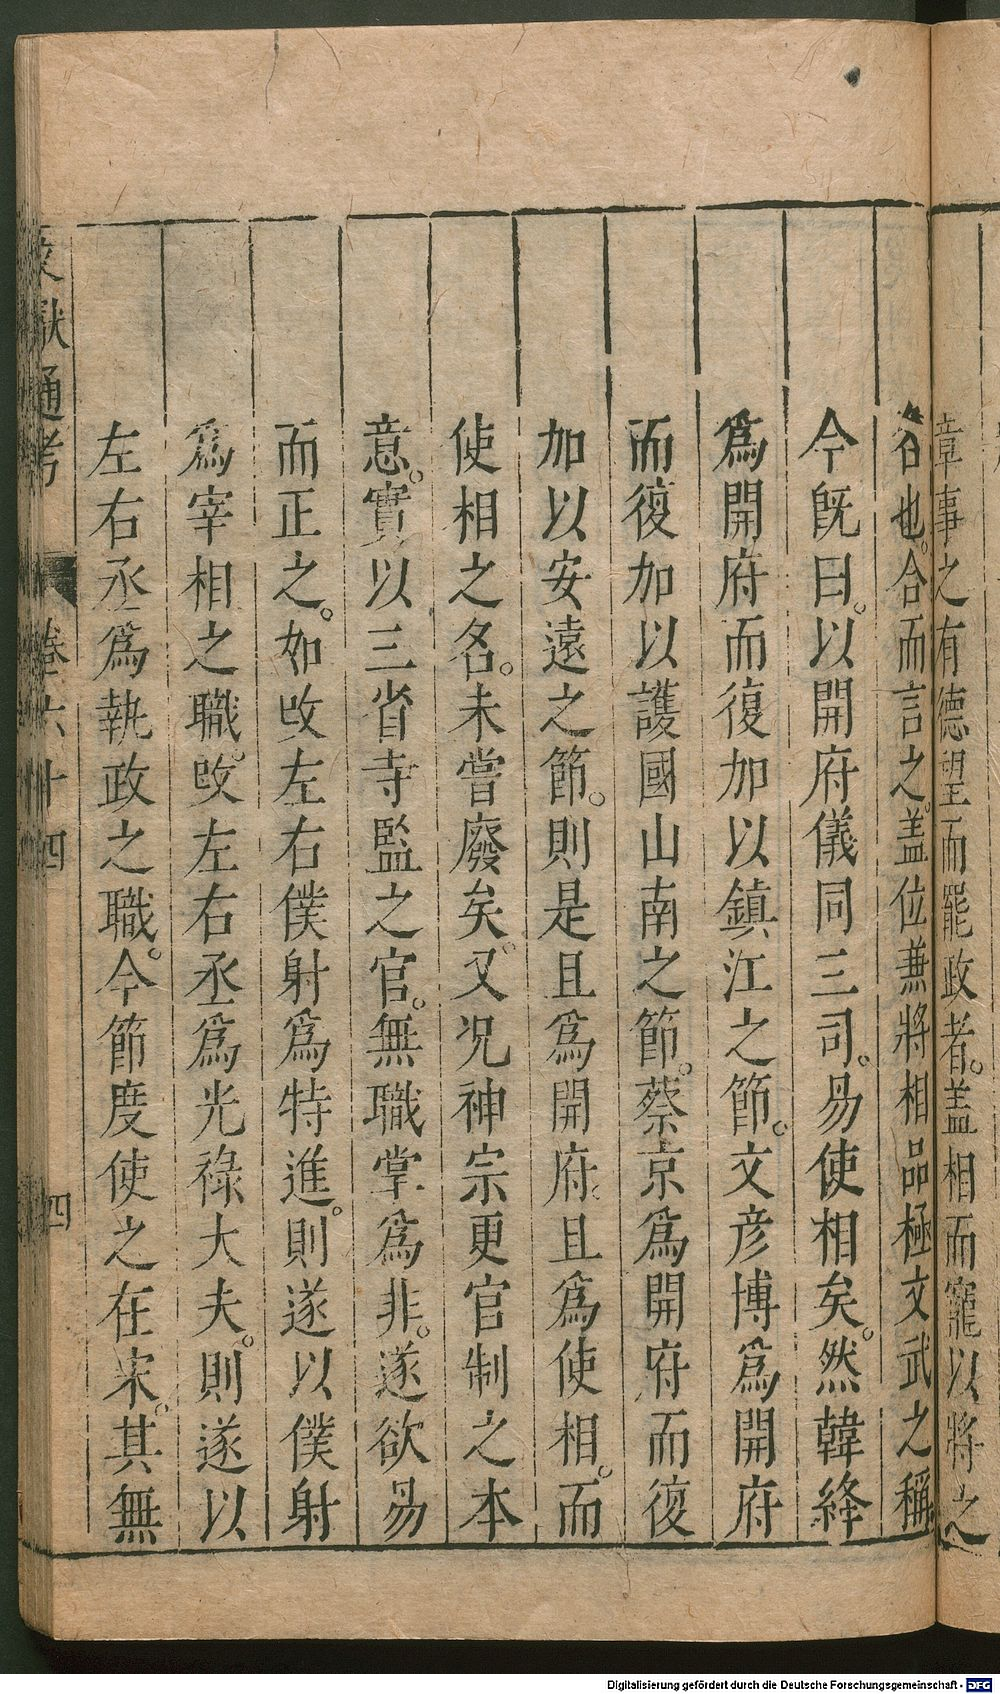 章事之有德望而罷政者。盖相而寵以將之
名也。合而言之。盖位兼將相品極文武之稱
今旣曰。以開府儀同三司。易使相矣。然韓絳
爲開府而復加以鎮江之節。文彥博爲開府
而復加以護國山南之節。蔡京爲開府而復
加以安遠之節。則是且爲開府。且爲使相。而
使相之名。未嘗廢矣。又况神宗更官制之本
意。實以三省寺監之官。無職掌爲非。遂欲易
而正之。如改左右僕射爲特進。則遂以僕射
爲宰相之職。改左右丞爲光祿大夫。則遂以
左右丞爲執政之職。今節度使之在宋。其無
文獻通考 卷六十四 四
Digitalisierung gefördert durch die Deutsche Forschungsgemeinschaft - DFG